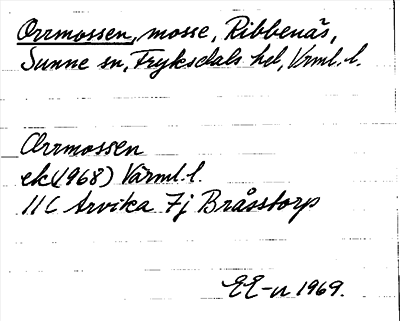 Orrmossen, mosse, Ribbenäs,
Sunne sn, Fryksdals hd, Vrml. l.
Orrmossen
ek (1968) Värml. l.
11 C Arvika 7j Bråsstorp
EE-n 1969.